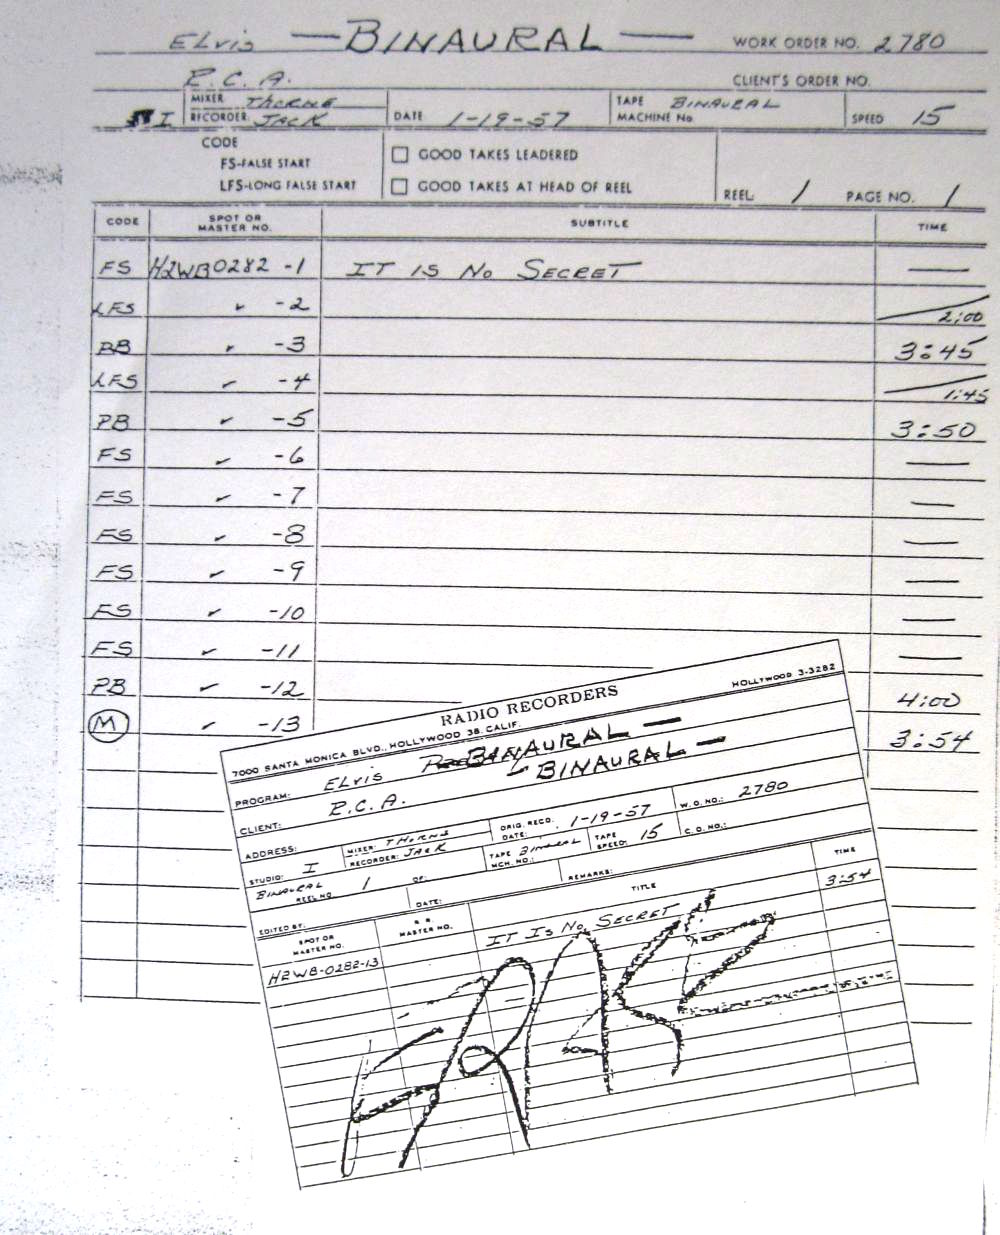 ELVIS — BINAURAL — WORK ORDER NO. 2780
R.C.A. CLIENT'S ORDER NO.
I MIXER THORNE RECORDER JACK DATE 1-19-57 TAPE MACHINE No BINAURAL SPEED 15
CODE
FS-FALSE START
LFS-LONG FALSE START
GOOD TAKES LEADERED
GOOD TAKES AT HEAD OF REEL
REEL 1 PAGE NO. 1
CODE SPOT OR MASTER NO. SUBTITLE TIME
FS H2WB0282 -1 IT IS NO SECRET —
LFS ✓ -2 2:00
PB ✓ -3 3:45
LFS ✓ -4 1:45
PB ✓ -5 3:50
FS ✓ -6 —
FS ✓ -7 —
FS ✓ -8 —
FS ✓ -9 —
FS ✓ -10 —
FS ✓ -11 —
PB ✓ -12 4:00
M ✓ -13 3:54
RADIO RECORDERS
7000 SANTA MONICA BLVD., HOLLYWOOD 38, CALIF. HOLLYWOOD 3-3282
PROGRAM: ELVIS BINAURAL —
CLIENT: R.C.A. BINAURAL —
ADDRESS: MIXER: THORNE ORIG. RECD. DATE: 1-19-57 W.O. NO.: 2780
STUDIO: I RECORDER: JACK TAPE MCH. NO.: BINAURAL TAPE SPEED: 15 C.O. NO.:
BINAURAL REEL NO. 1 OF: REMARKS:
EDITED BY: DATE:
SPOT OR MASTER NO. R.R. MASTER NO. TITLE TIME
H2WB-0282-13 IT IS NO SECRET 3:54
FAKE